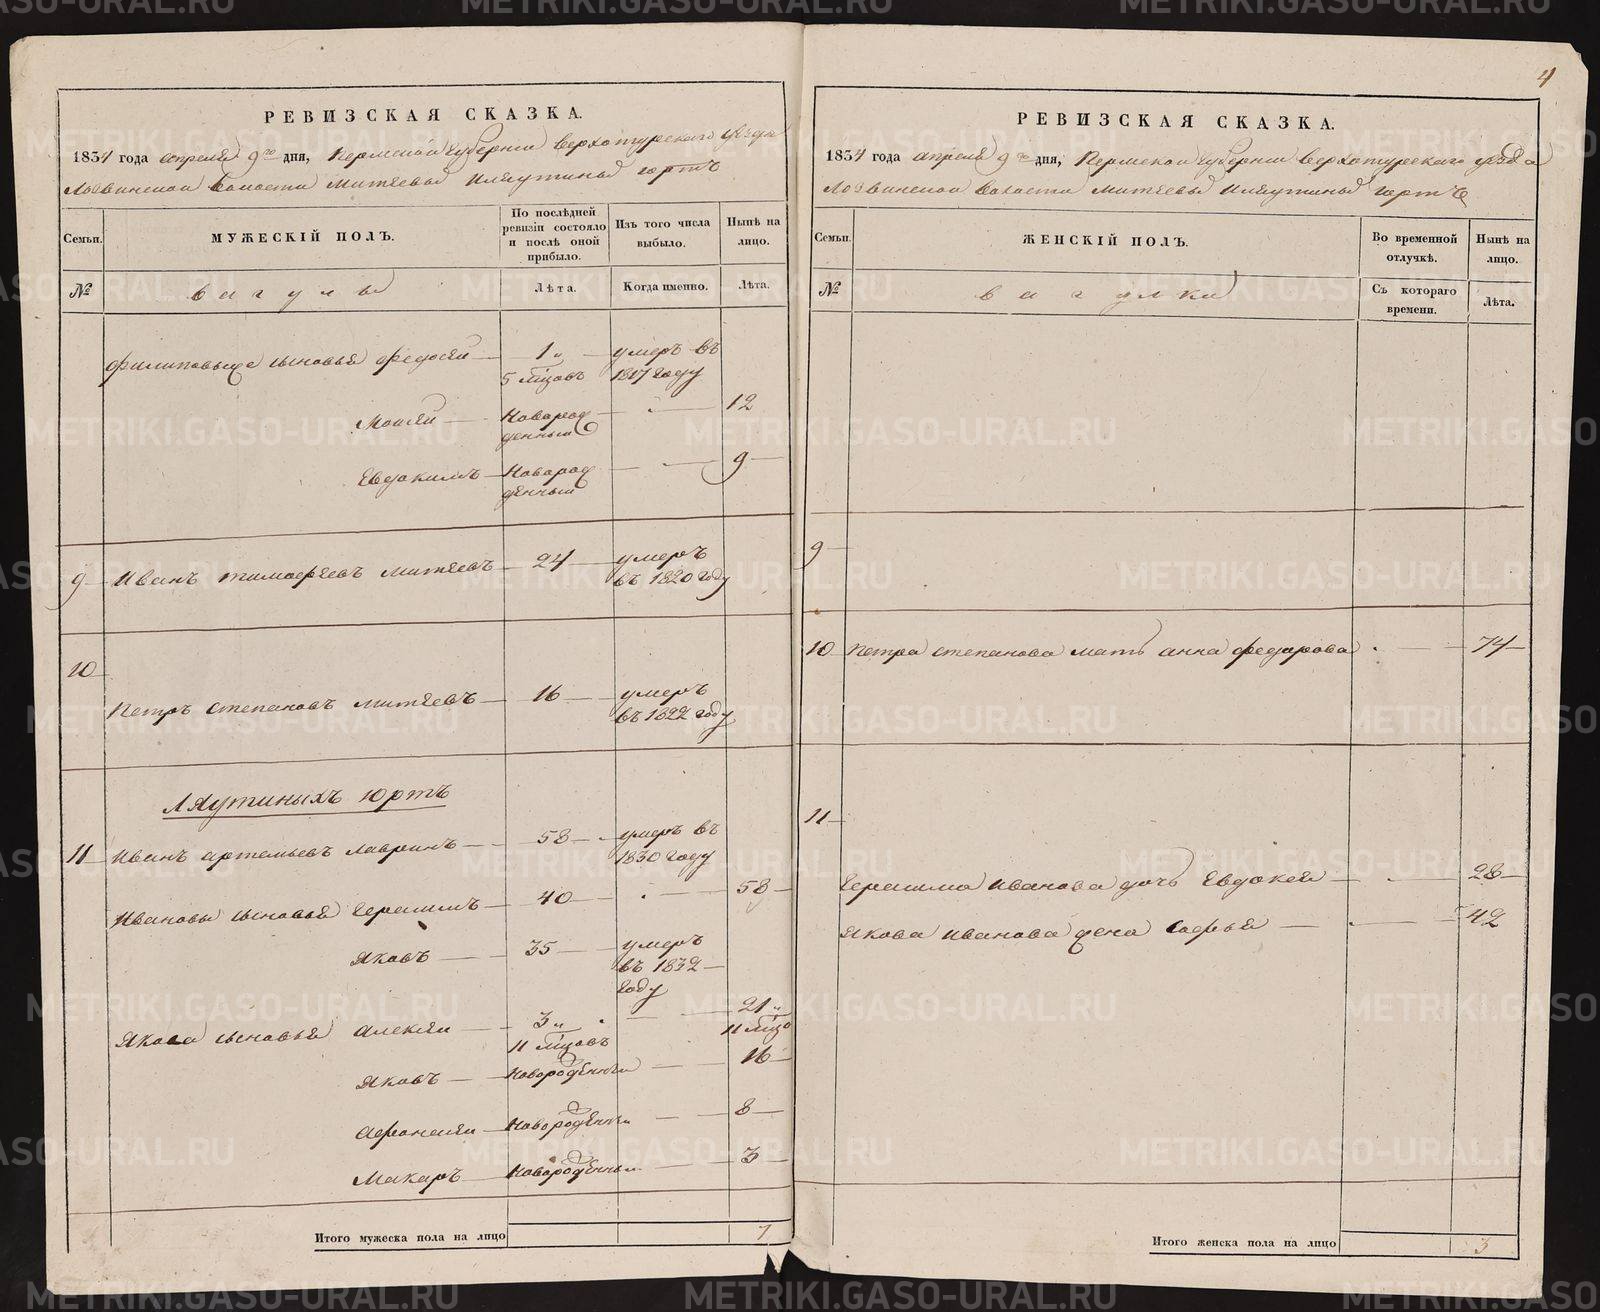 4
РЕВИЗСКАЯ СКАЗКА.
1834 года апреля 9го дня, Пермской Губернии верхотурского уезда
Лозвинской Валасти Митяевы Илляутины юртъ
Семьи. МУЖЕСКІЙ ПОЛЪ. По послѣдней ревизіи состояло и послѣ оной прибыло. Изъ того числа выбыло. Нынѣ на лицо.
№ вагулы Лѣта. Когда именно. Лѣта.
Филиповы сыновья Федосей 1 умеръ въ
5 мцовъ 1817 году
Моисей Наварод 12
денный
Евдокимъ Наварод 9
денный
9 Иванъ тимофеевъ митяевъ 24 умеръ
въ 1820 году
10
Петръ степановъ митяевъ 16 умеръ
въ 1822 году
Ляутиныхъ юртъ
11 Иванъ артемьевъ лавринъ 58 умеръ въ
1830 году
Ивановы сыновья герасимъ 40 58
яковъ 35 умеръ
въ 1832
году
якова сыновья алексеи 3 21
11 мцовъ 11 мцо
яковъ Новорожденны 16
афонасеи Новорожденны 8
Макаръ Наворожденны 3
Итого мужеска пола на лицо 7
РЕВИЗСКАЯ СКАЗКА.
1834 года апреля 9го дня, Пермской Губернии верхотурского уезда
Лозвинской Валасти митяевы Илляутины юртъ
Семьи. ЖЕНСКІЙ ПОЛЪ. Во временной отлучкѣ. Нынѣ на лицо.
№ вагулки Съ котораго времени. Лѣта.
9
10 Петра степанова мать анна федарова 74
11
герасима иванова дочь Евдокея 28
якова иванова жена Софья 42
Итого женска пола на лицо 3
METRIKI.GASO-URAL.RU